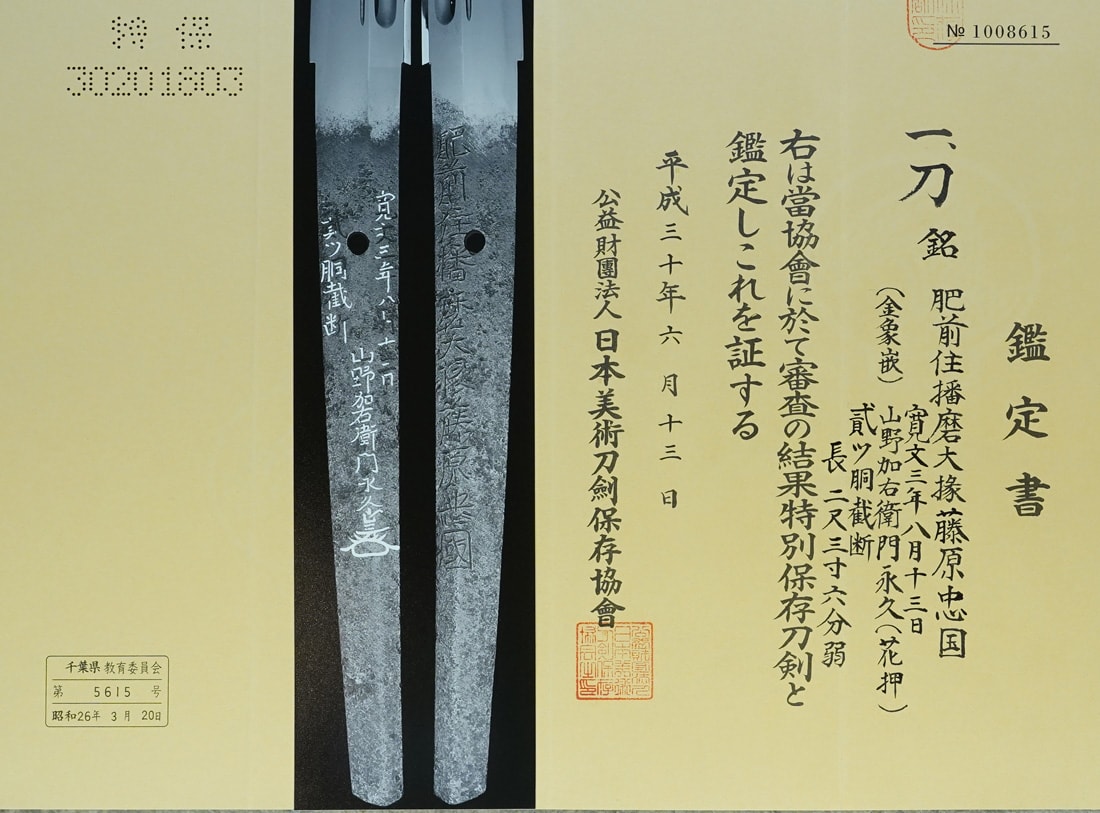 № 1008615
鑑定書
一、刀 銘 肥前住播磨大掾藤原忠国
(金象嵌) 寛文三年八月十三日
山野加右衛門永久(花押)
貳ツ胴截断
長 二尺三寸六分弱
右は當協會に於て審査の結果特別保存刀剣と
鑑定しこれを証する
平成三十年六月十三日
公益財團法人 日本美術刀劍保存協會
肥前住播磨大掾藤原忠國
山野加右衛門永久
貳ツ胴截断
特 保
30201803
千葉県教育委員会
第 5615 号
昭和26年 3月 20日